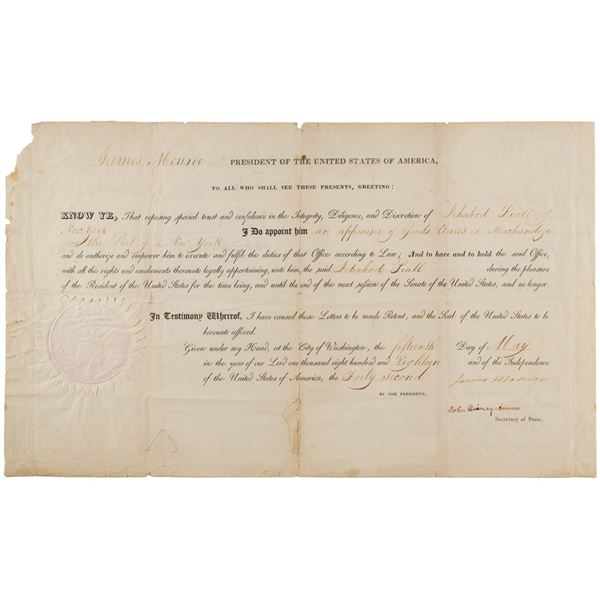 James Monroe PRESIDENT OF THE UNITED STATES OF AMERICA,
TO ALL WHO SHALL SEE THESE PRESENTS, GREETING:
KNOW YE, That reposing special trust and confidence in the Integrity, Diligence, and Discretion of Ichabod Pratt of
New York I Do appoint him an appraiser of Goods Wares & Merchandize
for the Port of New York,
and do authorize and empower him to execute and fulfil the duties of that Office according to Law; And to have and to hold the said Office,
with all the rights and emoluments thereunto legally appertaining, unto him, the said Ichabod Pratt during the pleasure
of the President of the United States for the time being, and until the end of the next session of the Senate of the United States, and no longer.
In Testimony Whereof, I have caused these Letters to be made Patent, and the Seal of the United States to be
hereunto affixed.
Given under my Hand, at the City of Washington, the fifteenth Day of May
in the year of our Lord one thousand eight hundred and Eighteen and of the Independence
of the United States of America, the Forty Second
James Monroe
BY THE PRESIDENT,
John Quincy Adams
Secretary of State.